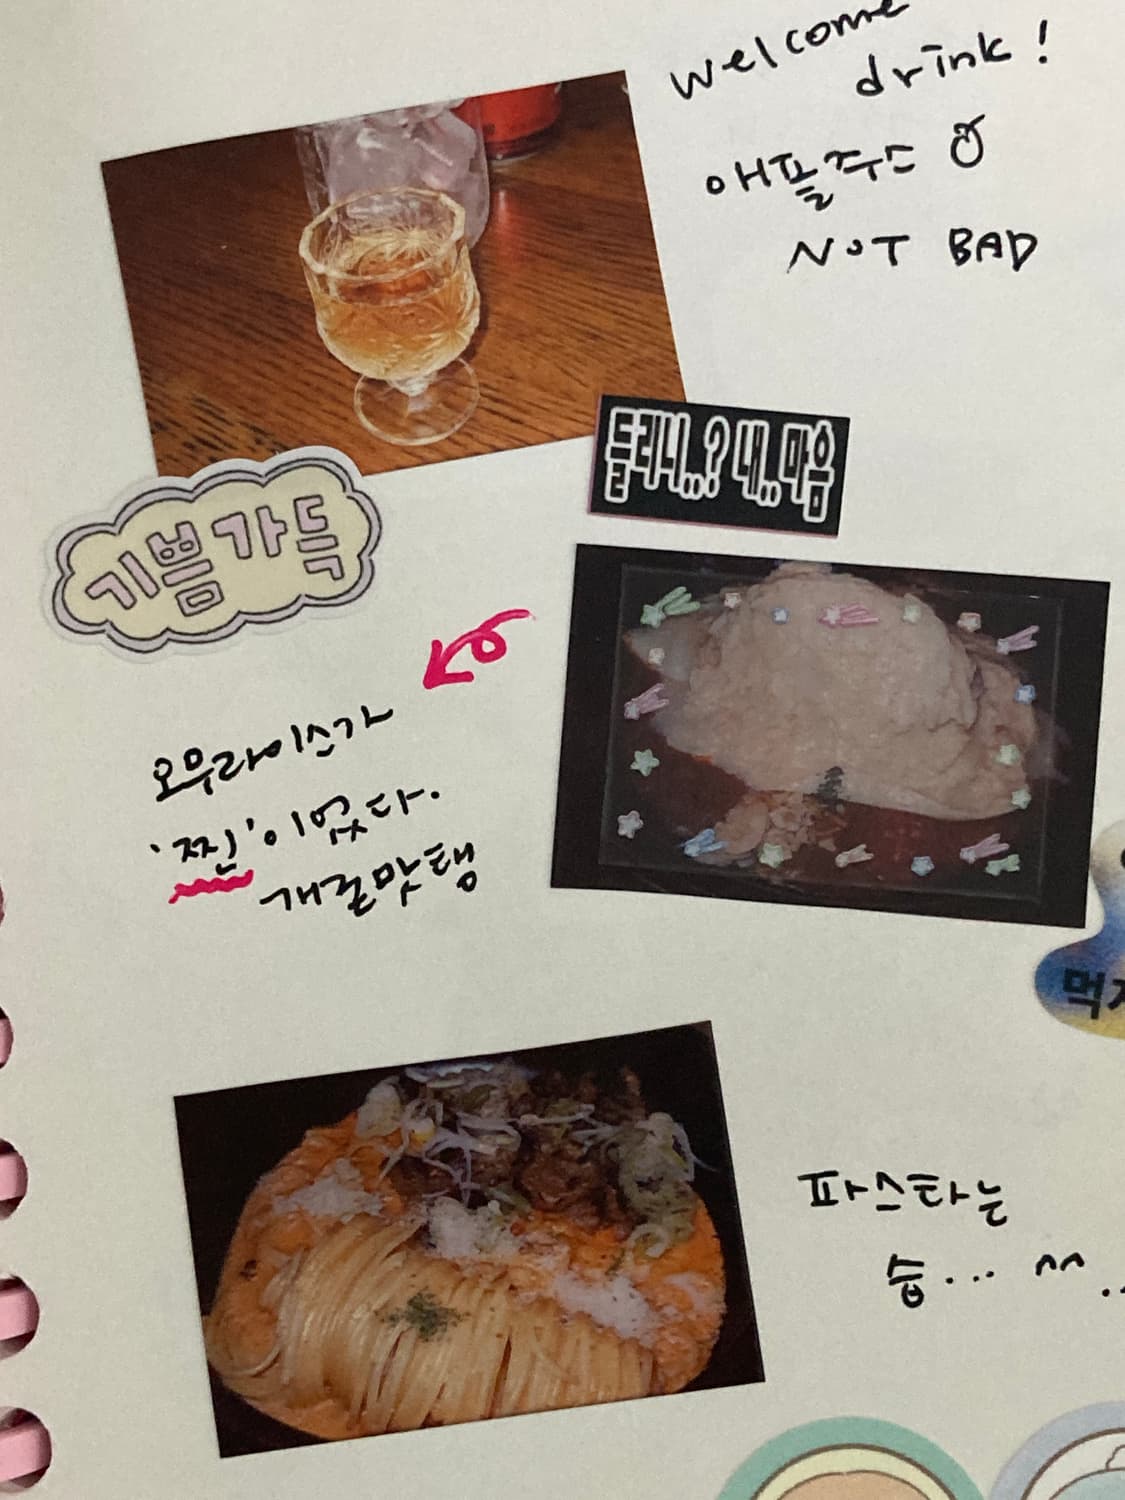 welcome
drink!
애플쥬스
NOT BAD
들리니..? 내..마음
기쁨가득
오무라이스가
'찐'이었다.
개존맛탱
먹
파스타는
슴... ^^ ..